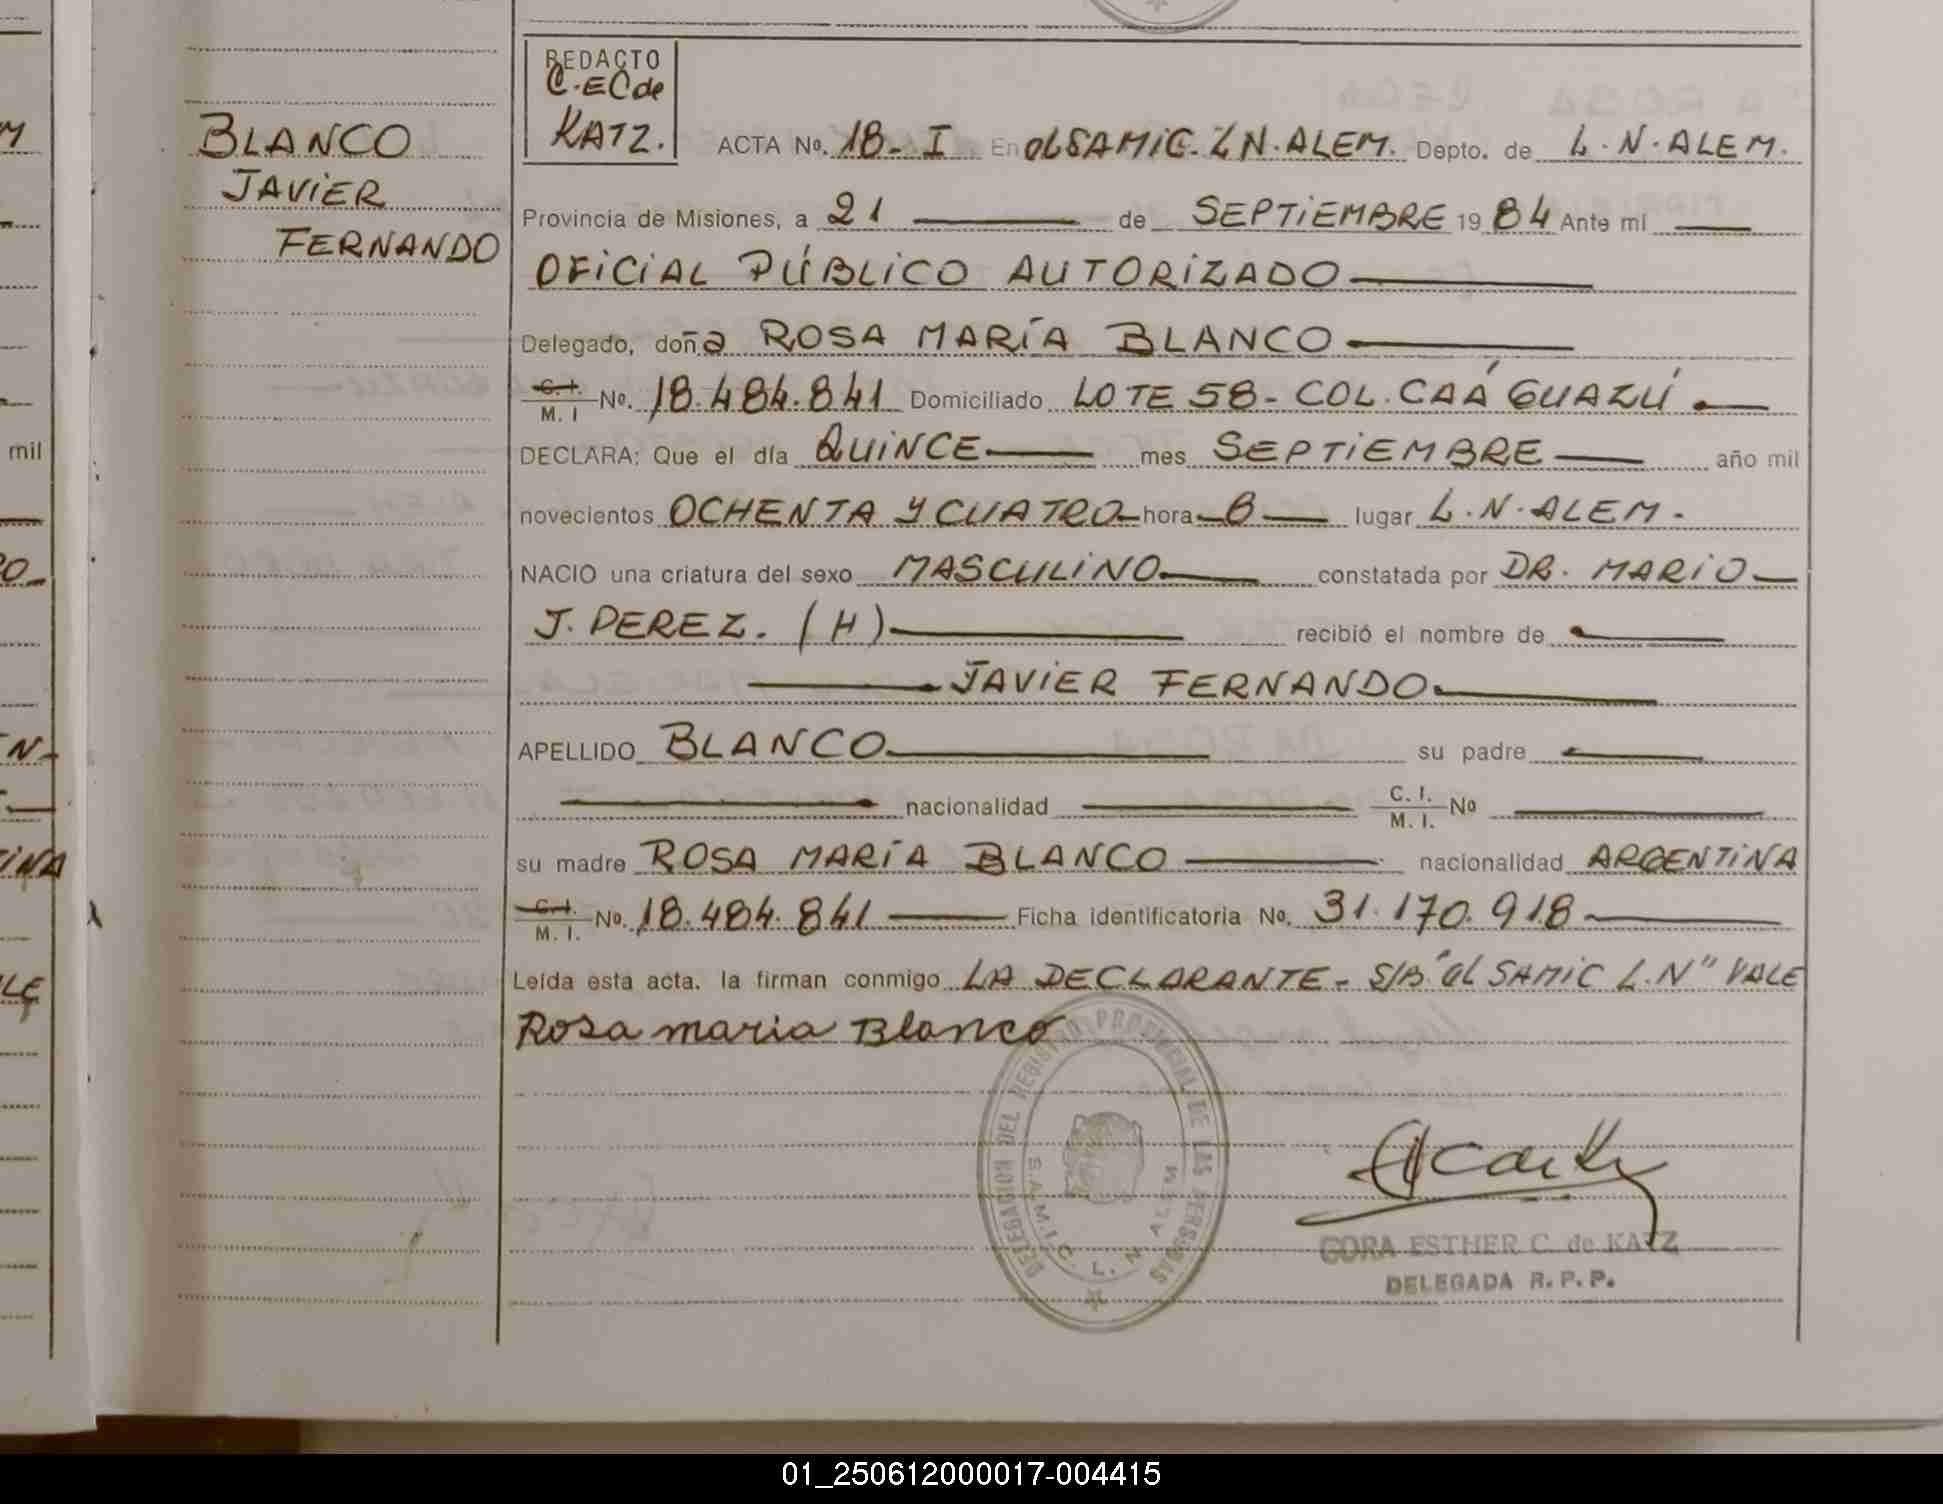 BLANCO
JAVIER
FERNANDO
REDACTO
C. EC de
KATZ.
ACTA No. 18 - I En OLSAMIC. L N. ALEM. Depto. de L. N. ALEM.
Provincia de Misiones, a 21 de SEPTIEMBRE 1984 Ante mí
OFICIAL PÚBLICO AUTORIZADO
Delegado, doña ROSA MARÍA BLANCO
C. I. M. I No. 18.484.841 Domiciliado LOTE 58 - COL. CAÁ GUAZÚ.
DECLARA: Que el día QUINCE mes SEPTIEMBRE año mil
novecientos OCHENTA Y CUATRO hora 8 lugar L. N. ALEM.
NACIO una criatura del sexo MASCULINO constatada por DR. MARIO
J. PEREZ. (H) recibió el nombre de
JAVIER FERNANDO
APELLIDO BLANCO su padre
nacionalidad C. I. M. I. No
su madre ROSA MARÍA BLANCO nacionalidad ARGENTINA
C. I. M. I. No. 18.484.841 Ficha identificatoria No. 31.170.918
Leída esta acta. la firman conmigo LA DECLARANTE - S/B "OLSAMIC L.N" VALE
Rosa maria Blanco
DELEGACION DEL REGISTRO PROVINCIAL DE LAS PERSONAS
S.A.M.I.C. L. N ALEM
CORA ESTHER C. de KATZ
DELEGADA R. P. P.
mil
01_250612000017-004415